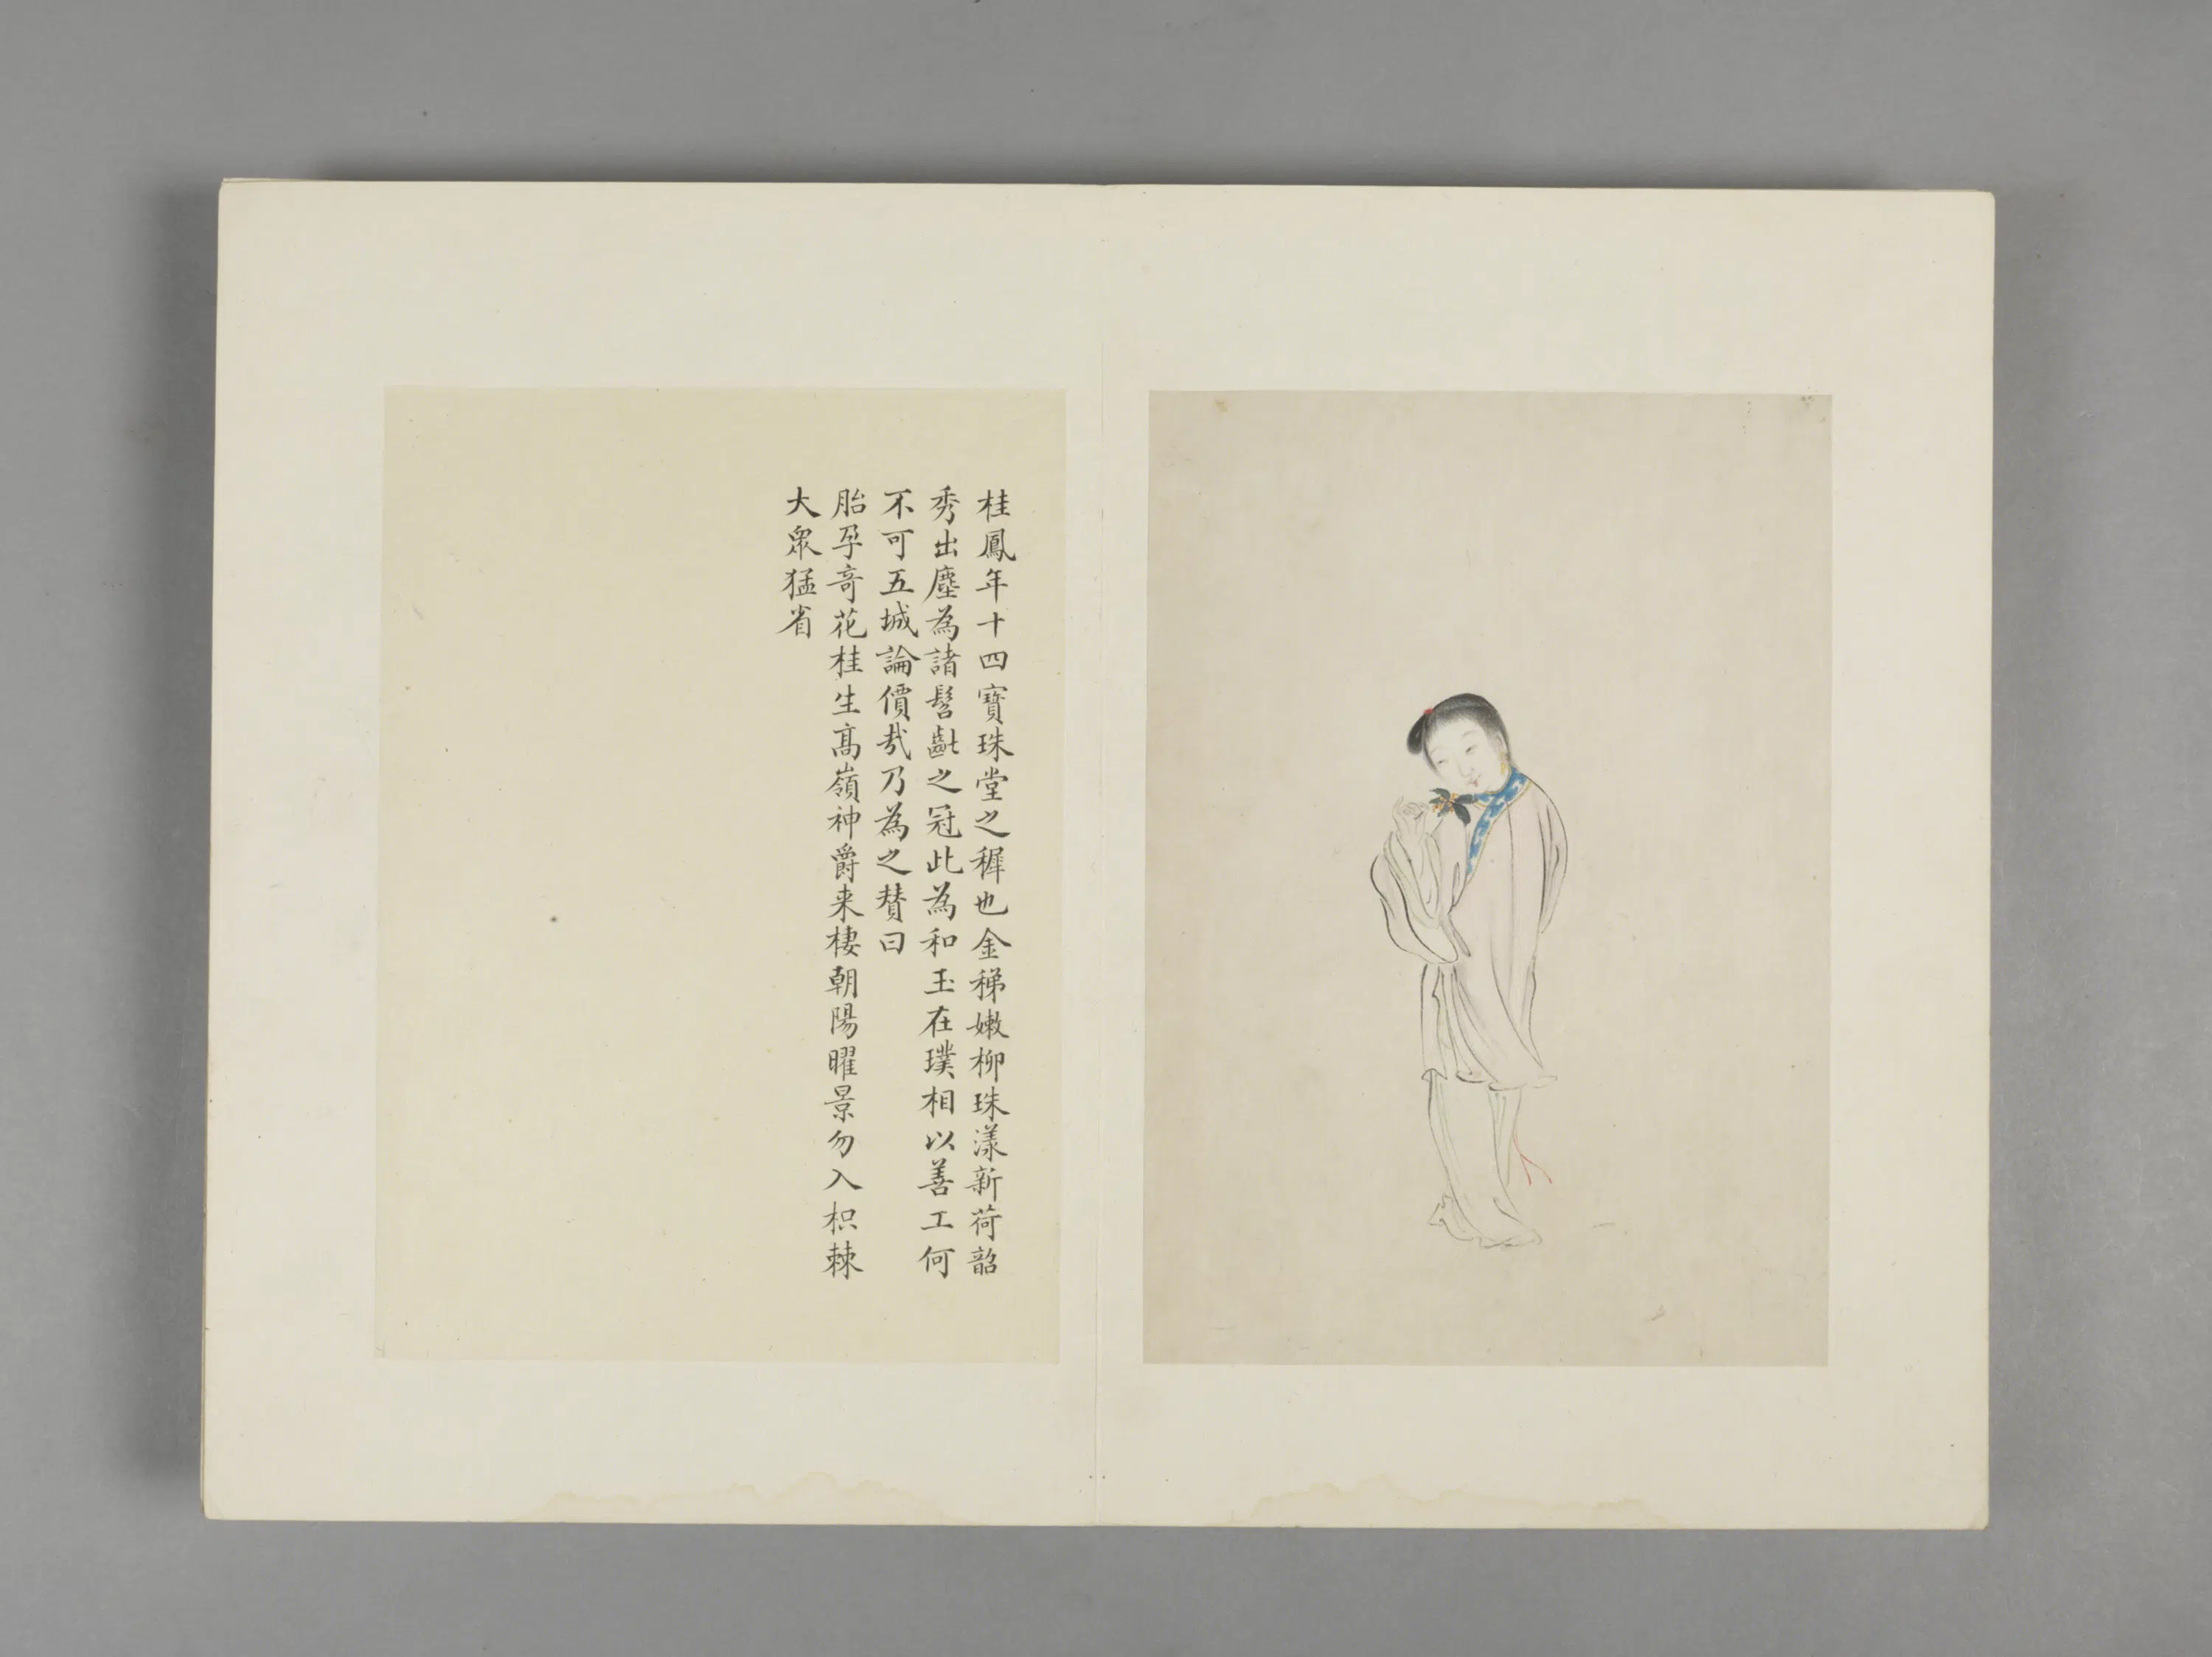 桂鳳年十四寶珠堂之穉也金稊嫩柳珠漾新荷韶
秀出塵為諸髫齔之冠此為和玉在璞相以善工何
不可五城論價㢤乃為之賛曰
胎孕竒花桂生髙嶺神爵来棲朝陽曜景勿入枳棘
大衆猛省